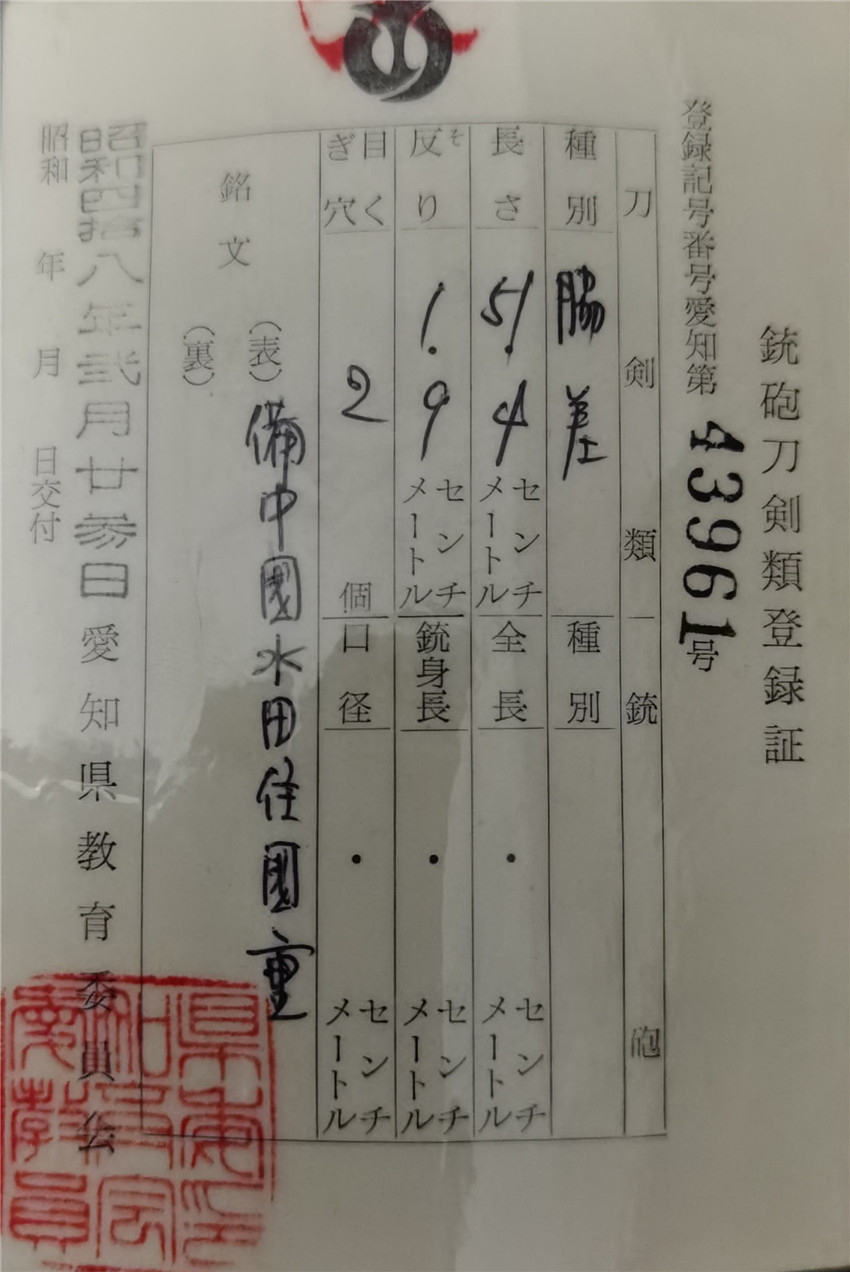 銃砲刀剣類登録証
登録記号番号愛知第 43961 号
刀剣類
銃砲
種別 脇差
種別
長さ 51.4 センチメートル
全長 ・ センチメートル
反り そ 1.9 センチメートル
銃身長 ・ センチメートル
目くぎ穴 2 個
口径 ・ センチメートル
銘文
(表) 備中國水田住國重
(裏)
昭和四拾八年弐月廿参日
愛知県教育委員会
昭和 年 月 日交付